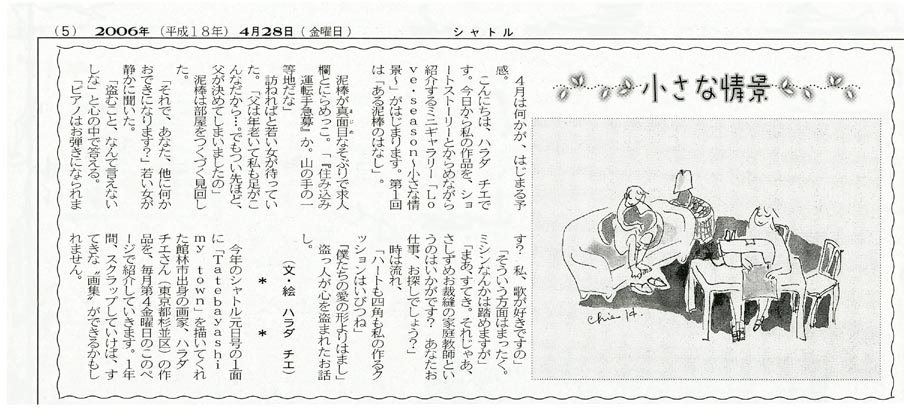 (5) 2006年 (平成18年) 4月28日 (金曜日) シャトル
小さな情景
4月は何かが、はじまる予
感。
こんにちは、ハラダ チエで
す。今日から私の作品を、ショ
ートストーリーとからめながら
紹介するミニギャラリー「Lo
ve・season〜小さな情
景〜」がはじまります。第1回
は「ある泥棒のはなし」。
泥棒が真面目なそぶりで求人
欄とにらめっこ。「『住み込み
運転手急募』か。山の手の一
等地だな」
訪ねればと若い女が待ってい
た。「父は年老いて私も足がこ
んなだから…。でもつい先ほど、
父が決めてしまいましたの」
泥棒は部屋をつくづく見回し
た。
「それで、あなた、他に何か
おできになります?」若い女が
静かに聞いた。
「盗むこと、なんて言えない
しな」と心の中で答える。
「ピアノはお弾きになられま
す? 私、歌が好きですの」
「そういう方面はまったく。
ミシンなんかは踏めますが」
「まあ、すてき。それじゃあ、
さしずめお裁縫の家庭教師とい
うのはいかがです? あなたお
仕事、お探しでしょう?」
時は流れ、
「ハートも四角も私の作るク
ッションはいびつね」
「僕たちの愛の形よりはまし」
盗っ人が心を盗まれたお話
し。
(文・絵 ハラダ チエ)
* *
今年のシャトル元日号の1面
に「Tatebayashi
my town」を描いてくれ
た館林市出身の画家、ハラダ
チエさん(東京都杉並区)の作
品を、毎月第4金曜日のこのペ
ージで紹介していきます。1年
間、スクラップしていけば、す
てきな〝画集〟ができるかもし
れません。
Chie H.